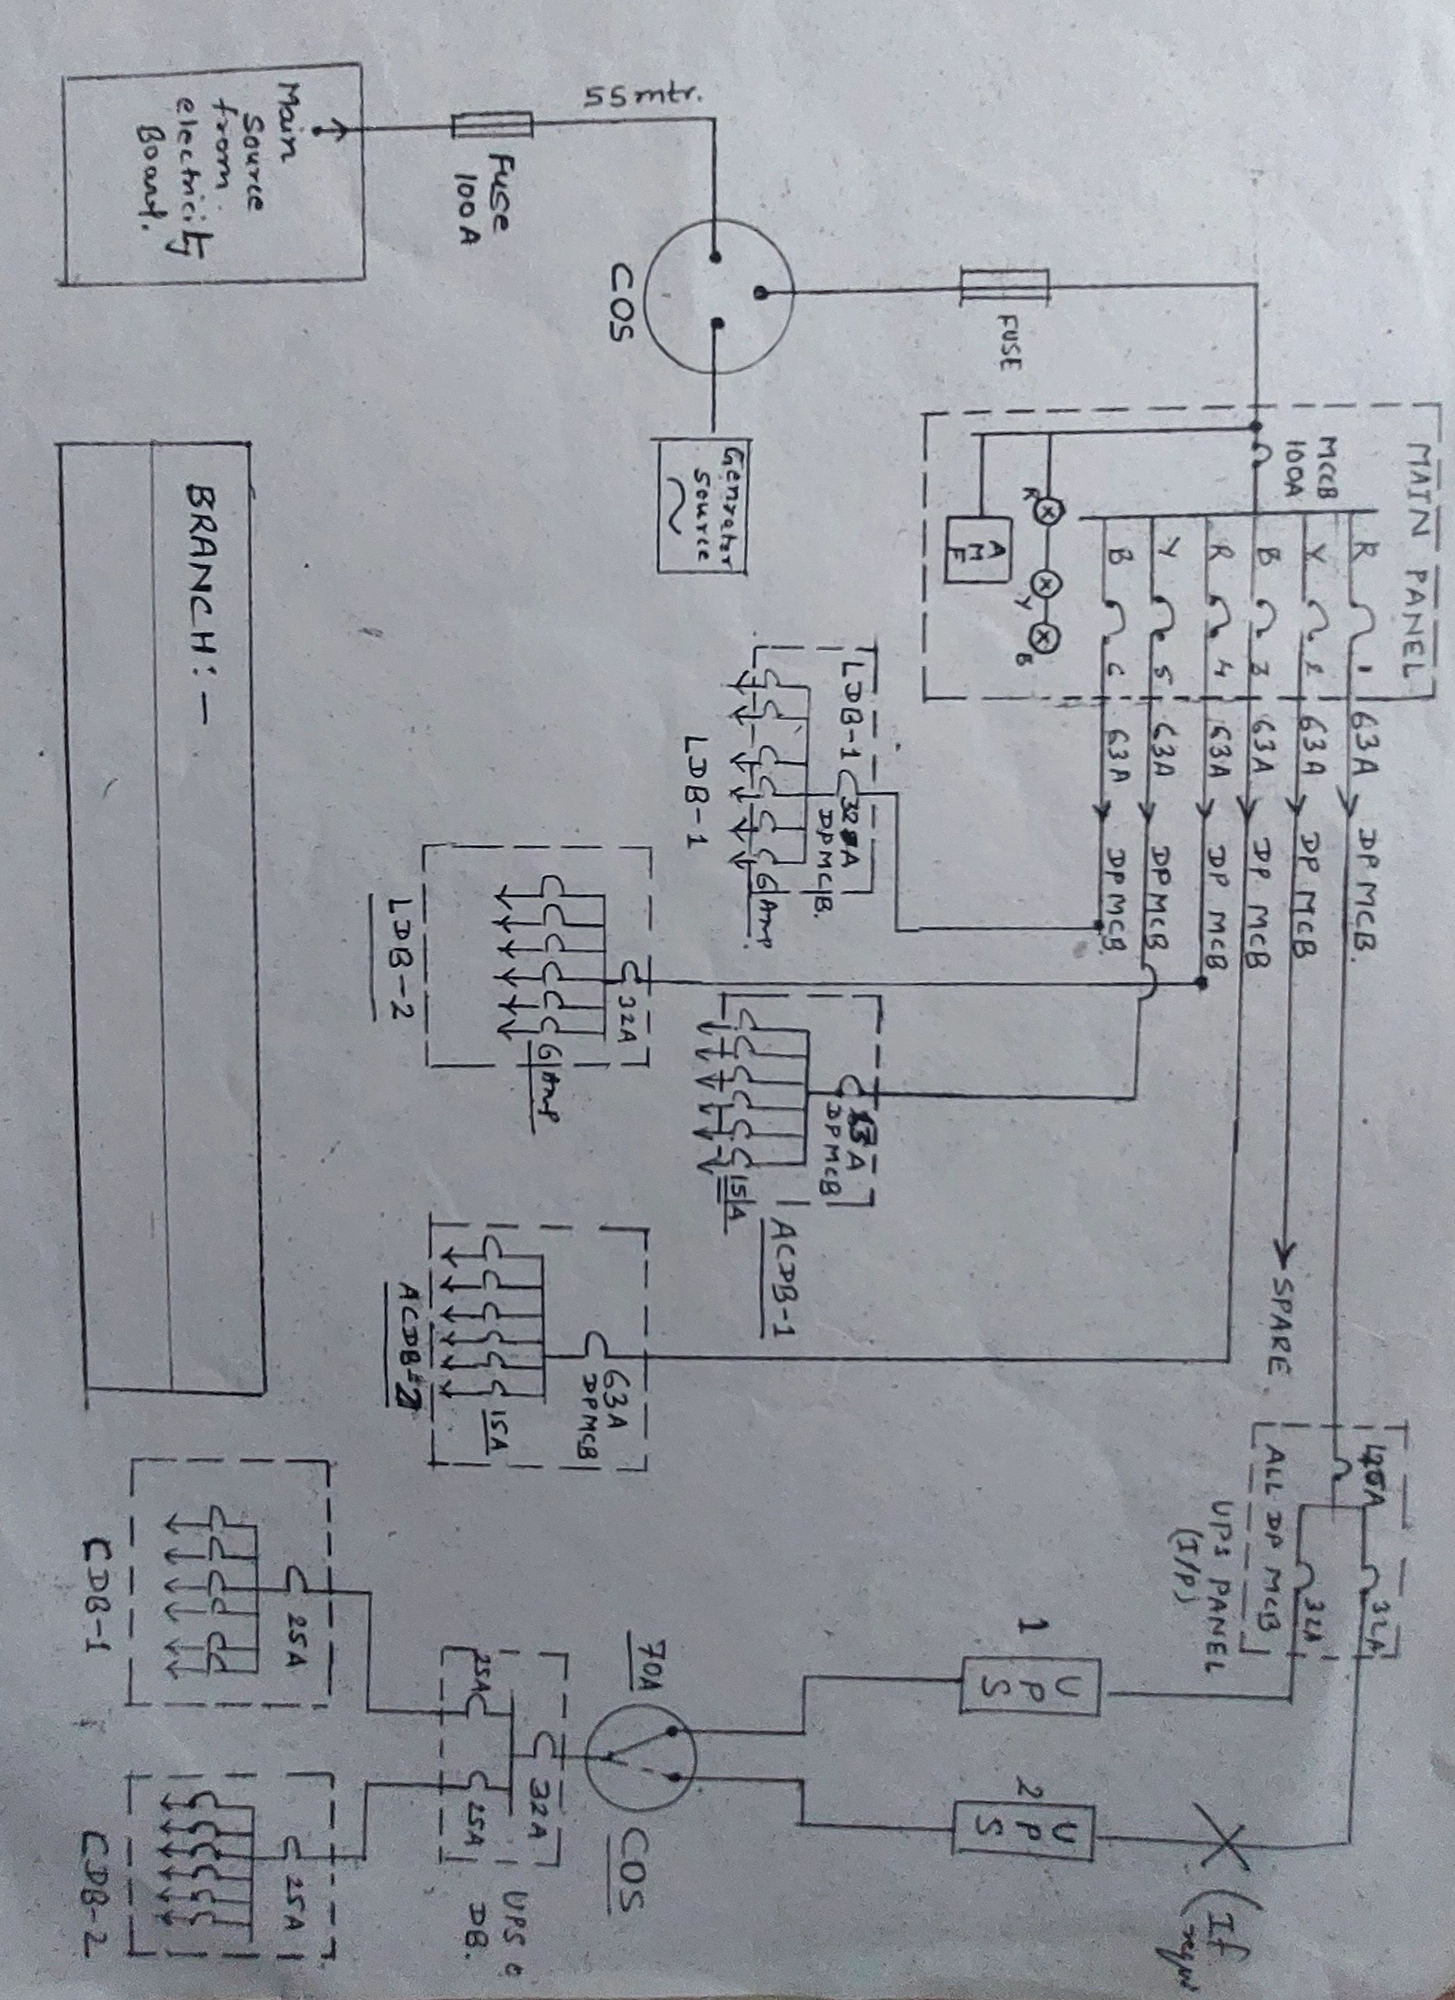 Main
Source
from
electricity
Board.
Fuse
100A
55mtr.
COS
Genrator
Source
FUSE
MAIN PANEL
MCCB
100A
R 1 63A DP MCB.
Y 2 63A DP MCB
SPARE
B 3 63A DP MCB
R 4 63A DP MCB
Y 5 63A DPMCB
B 6 63A DPMCB.
R
Y
B
A
M
F
LDB-1
32A
DPMCB.
6 Amp.
LDB-1
32A
6 Amp
LDB-2
A
DPMCB
15A
ACDB-1
63A
DPMCB
15A
ACDB-2
A
32A
32A
ALL DP MCB
UPS PANEL
(I/P)
1
UPS
2
UPS
(If
70A
COS
32A
25A
25A
UPS
DB.
25A
CDB-1
25A
CDB-2
BRANCH:-